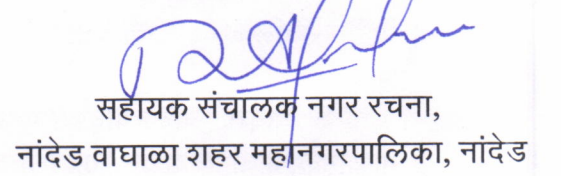 सहायक संचालक नगर रचना,
नांदेड वाघाळा शहर महानगरपालिका, नांदेड